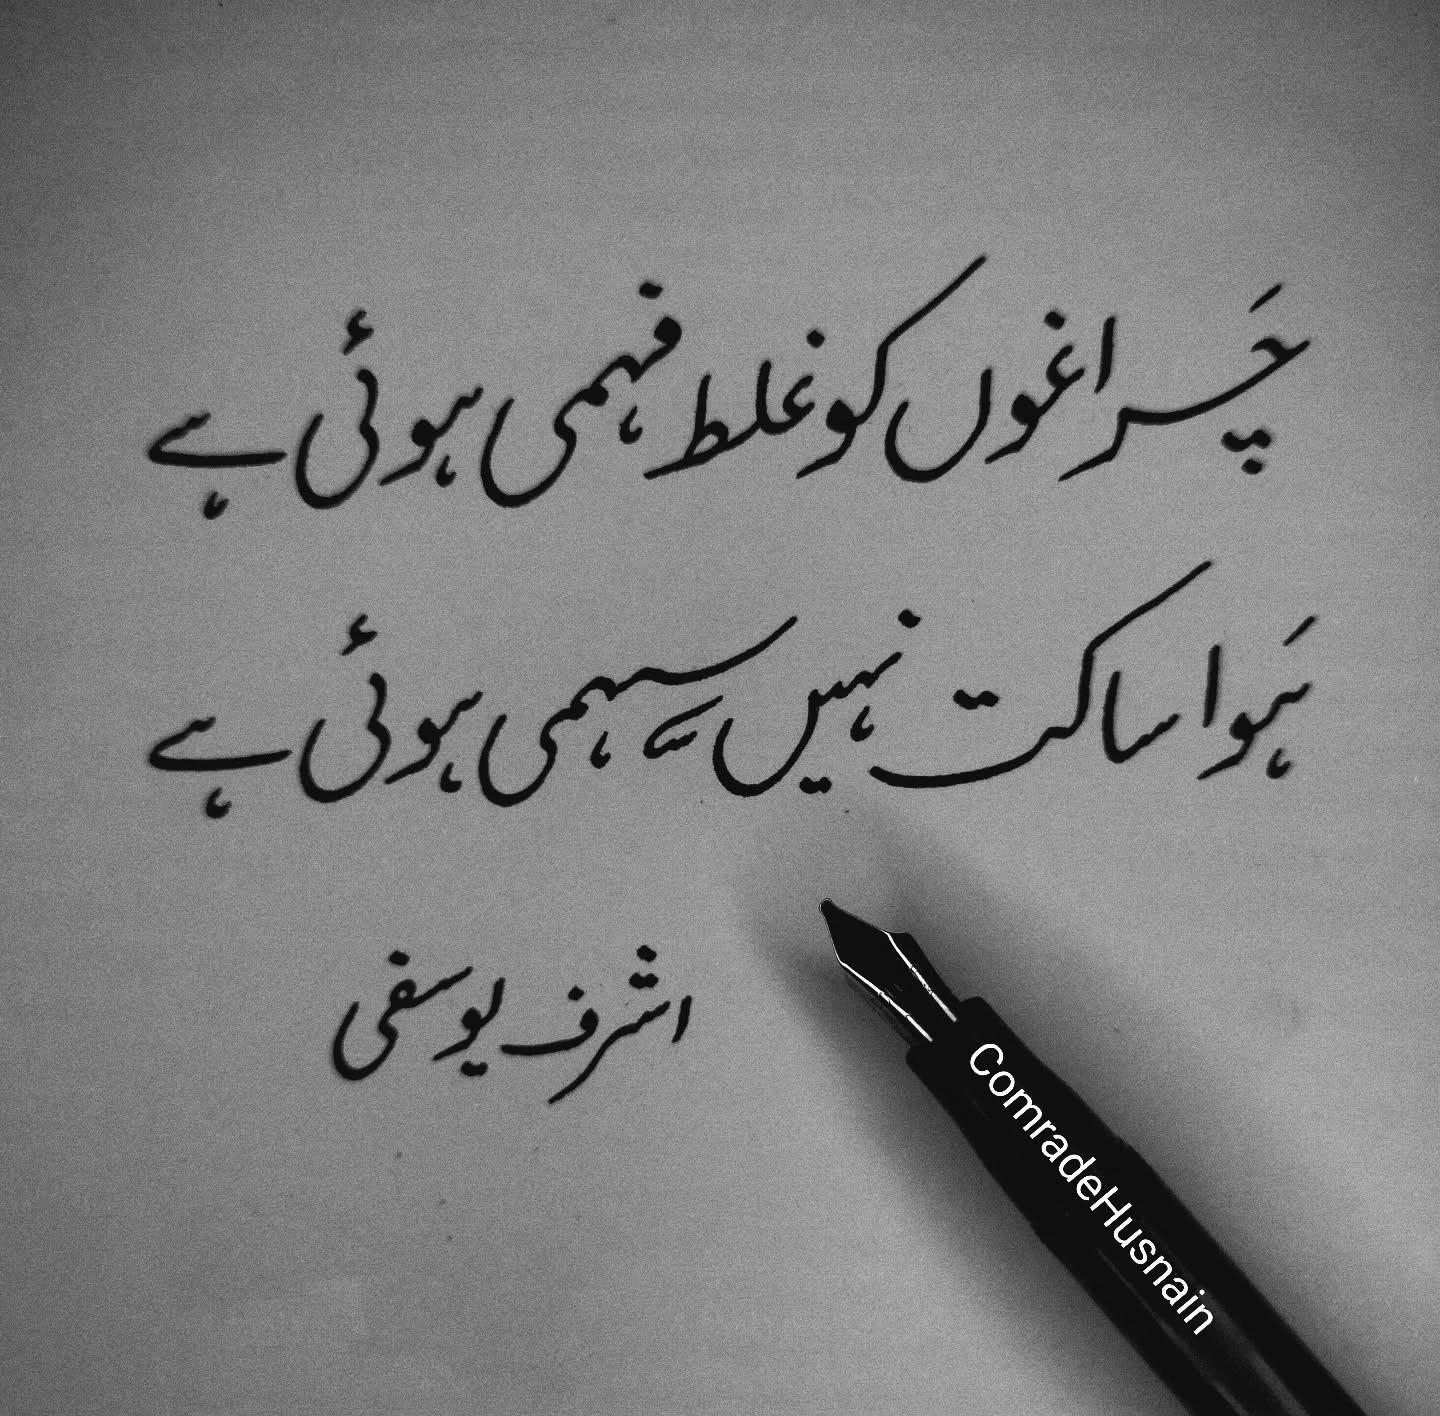 چَراغوں کو غلط فہمی ہوئی ہے
ہَوا ساکت نہیں سہمی ہوئی ہے
اشرف یوسفی
ComradeHusnain